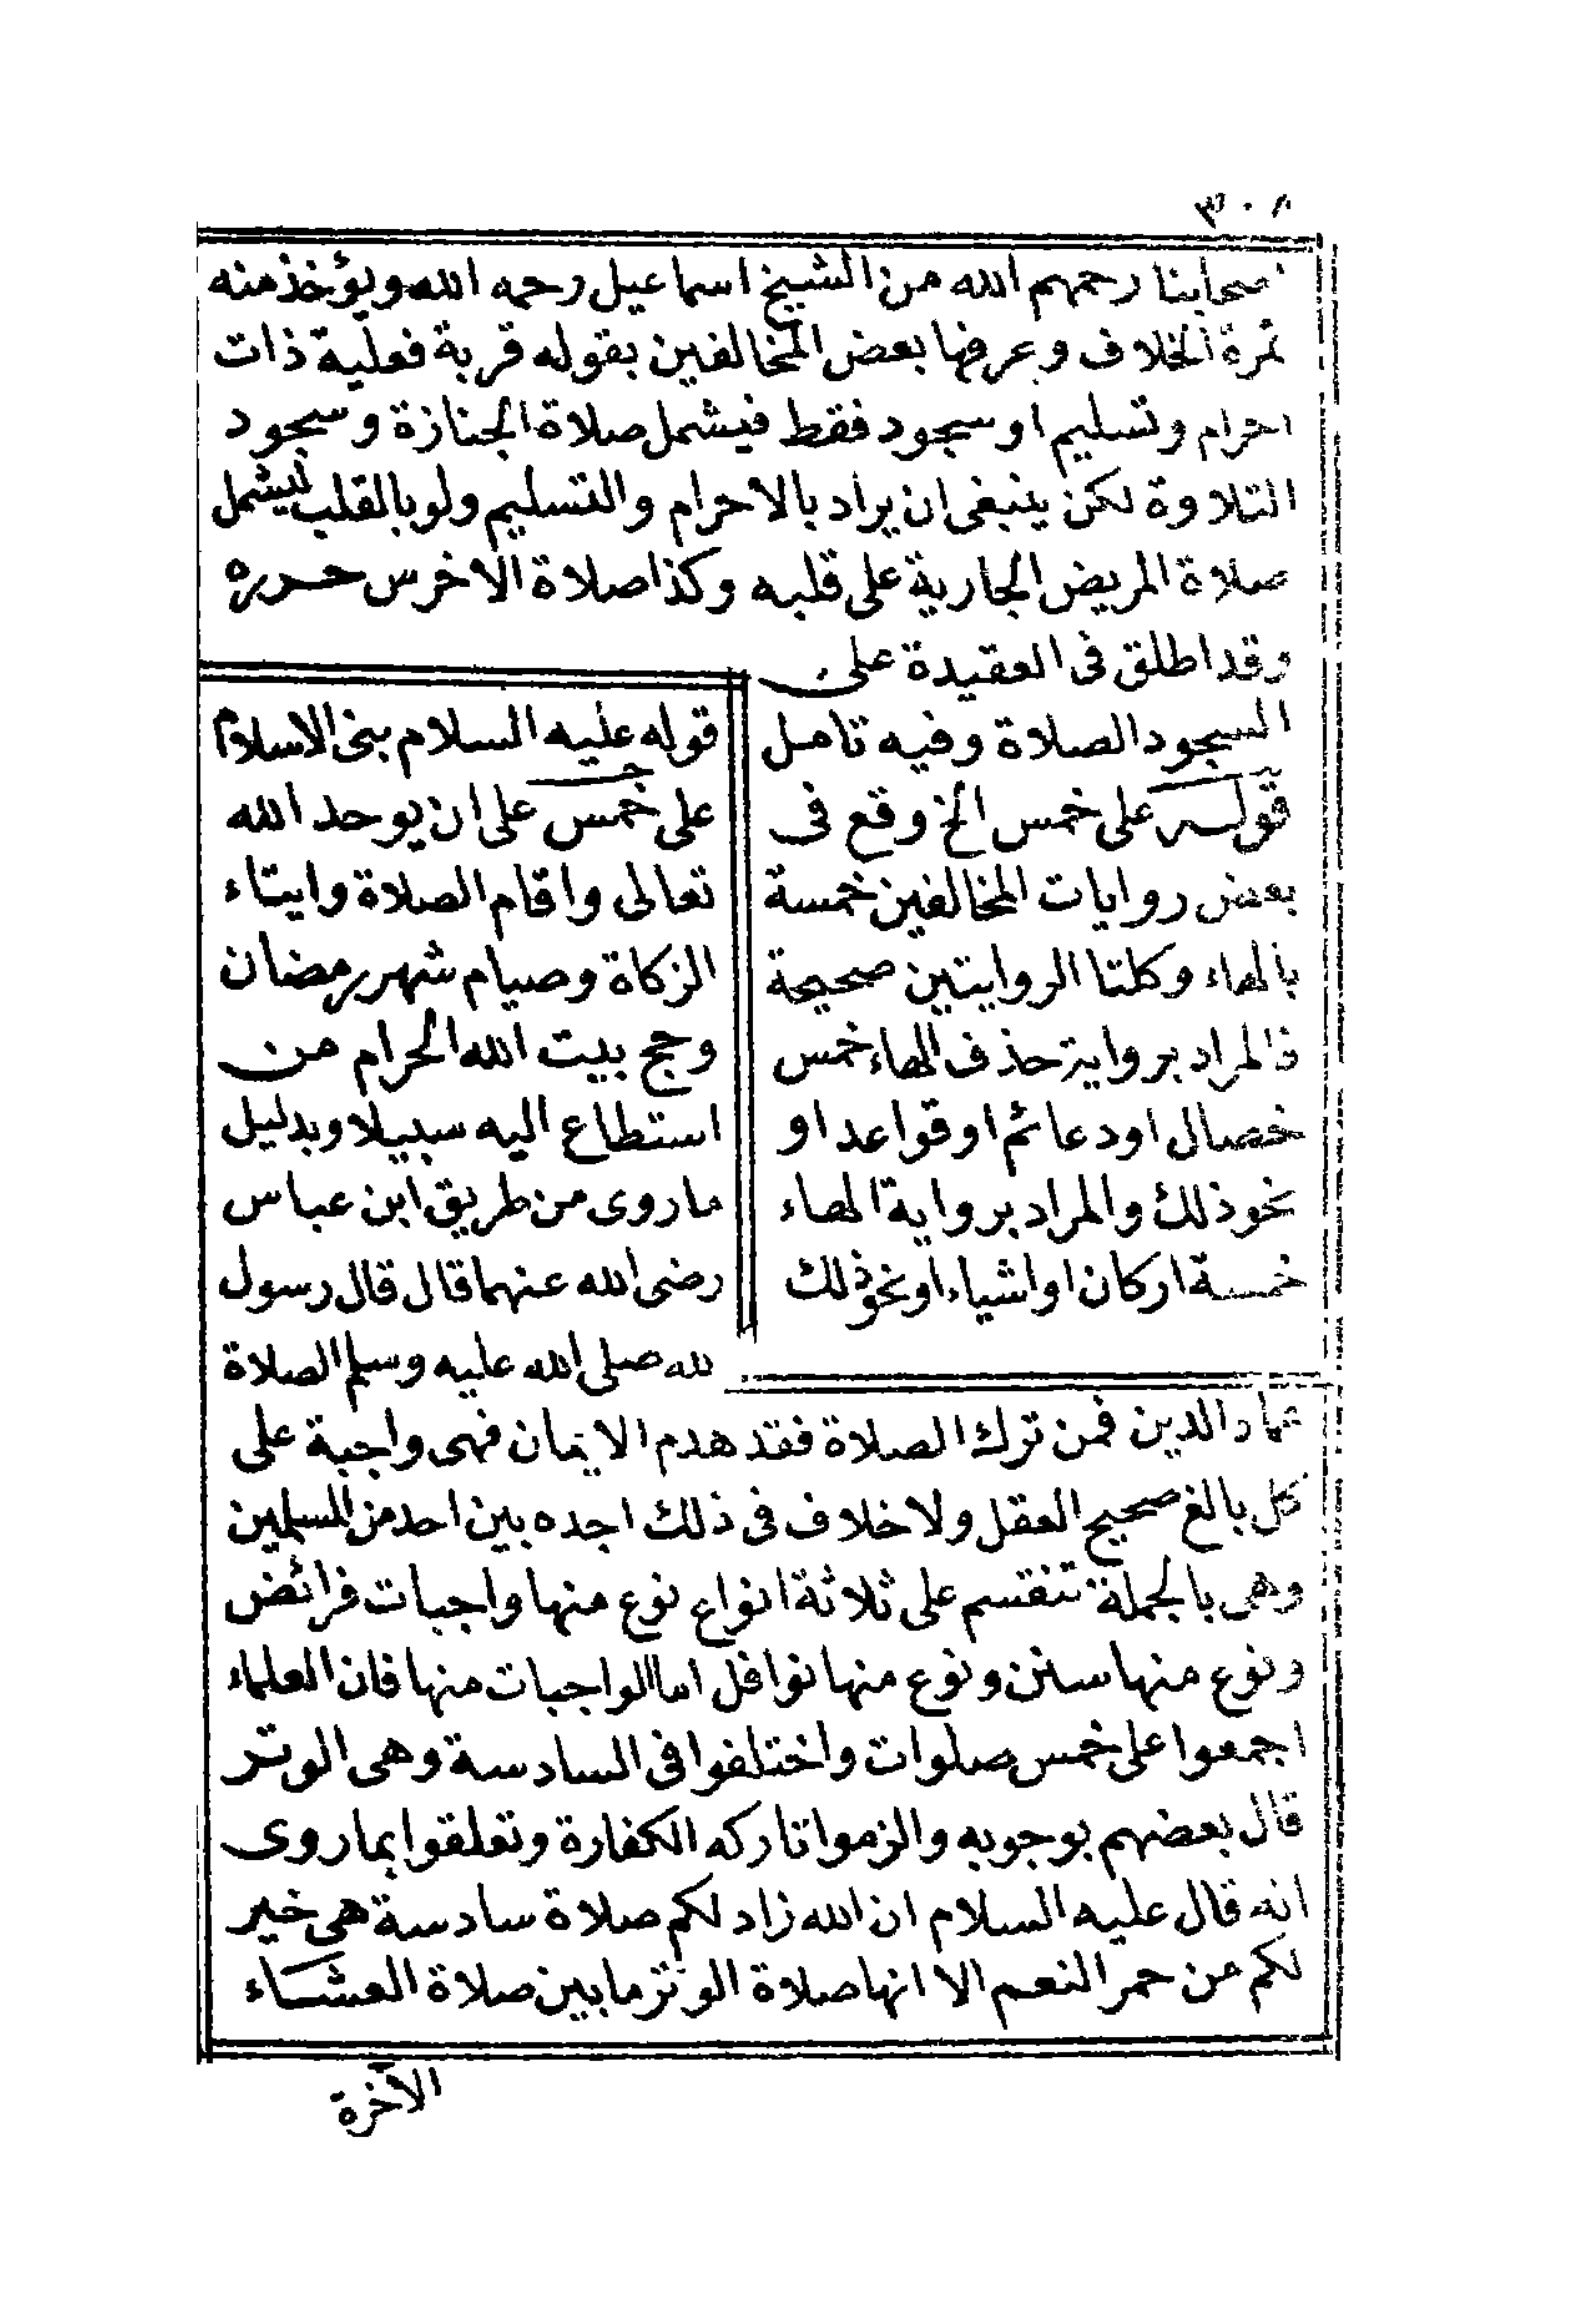 ٣٠٨
صحابنا رحمهم الله من الشيخ اسماعيل رحمه الله ويؤخذ منه
ثمرة الخلاف وعرفها بعض المخالفين بقوله قربة فعلية ذات
احرام وتسليم او سجود فقط فيشمل صلاة الجنازة وسجود
التلاوة لكن ينبغى ان يراد بالاحرام والتسليم ولو بالقلب ليشمل
صلاة المريض الجارية على قلبه وكذا صلاة الاخرس حرره
وقد اطلق فى العقيدة على
السجود الصلاة وفيه تامل
قوله على خمس الخ وقع فى
بعض روايات المخالفين خمسة
بالهاء وكلتا الروايتين صحيحة
فالمراد برواية حذف الهاء خمس
خصال او دعائم او قواعد او
نحو ذلك والمراد برواية الهاء
خمسة اركان او اشياء او نحو ذلك
قوله عليه السلام بنى الاسلام
على خمس على ان يوحد الله
تعالى واقام الصلاة وايتاء
الزكاة وصيام شهر رمضان
وحج بيت الله الحرام من
استطاع اليه سبيلا وبدليل
ما روى من طريق ابن عباس
رضى الله عنهما قال قال رسول
لله صلى الله عليه وسلم الصلاة
عماد الدين فمن ترك الصلاة فقد هدم الايمان فهى واجبة على
كل بالغ صحيح العقل ولا خلاف فى ذلك اجده بين احد من المسلمين
وهى بالجملة تنقسم على ثلاثة انواع نوع منها واجبات فرائض
ونوع منها سنن ونوع منها نوافل اما الواجبات منها فان العلماء
اجمعوا على خمس صلوات واختلفوا فى السادسة وهى الوتر
قال بعضهم بوجوبه والزموا تاركه الكفارة وتعلقوا بما روى
انه قال عليه السلام ان الله زاد لكم صلاة سادسة هى خير
لكم من حمر النعم الا انها صلاة الوتر ما بين صلاة العشاء
الآخرة